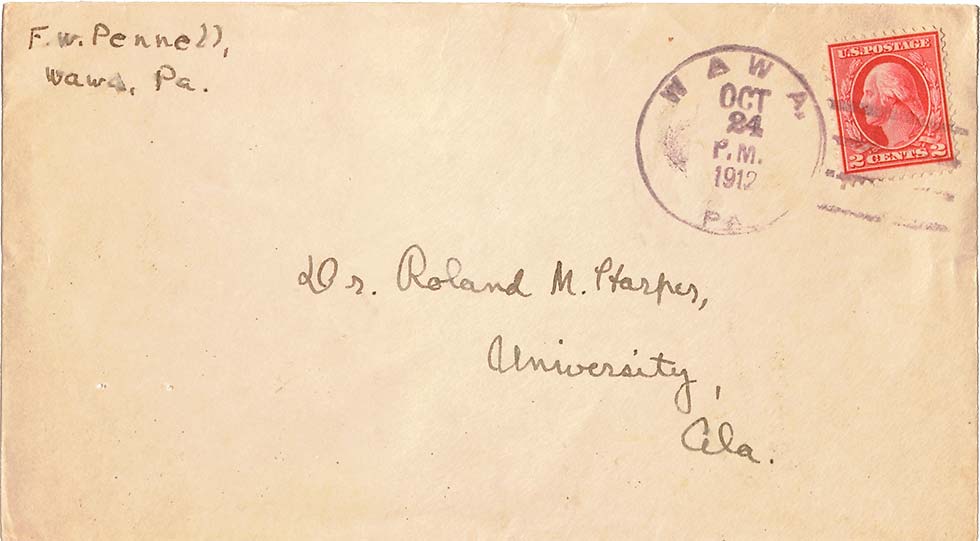 F. W. Pennell,
Wawa, Pa.
WAWA,
OCT
24
P.M.
1912
PA.
U.S. POSTAGE
2 CENTS 2
Dr. Roland M. Harper,
University,
Ala.